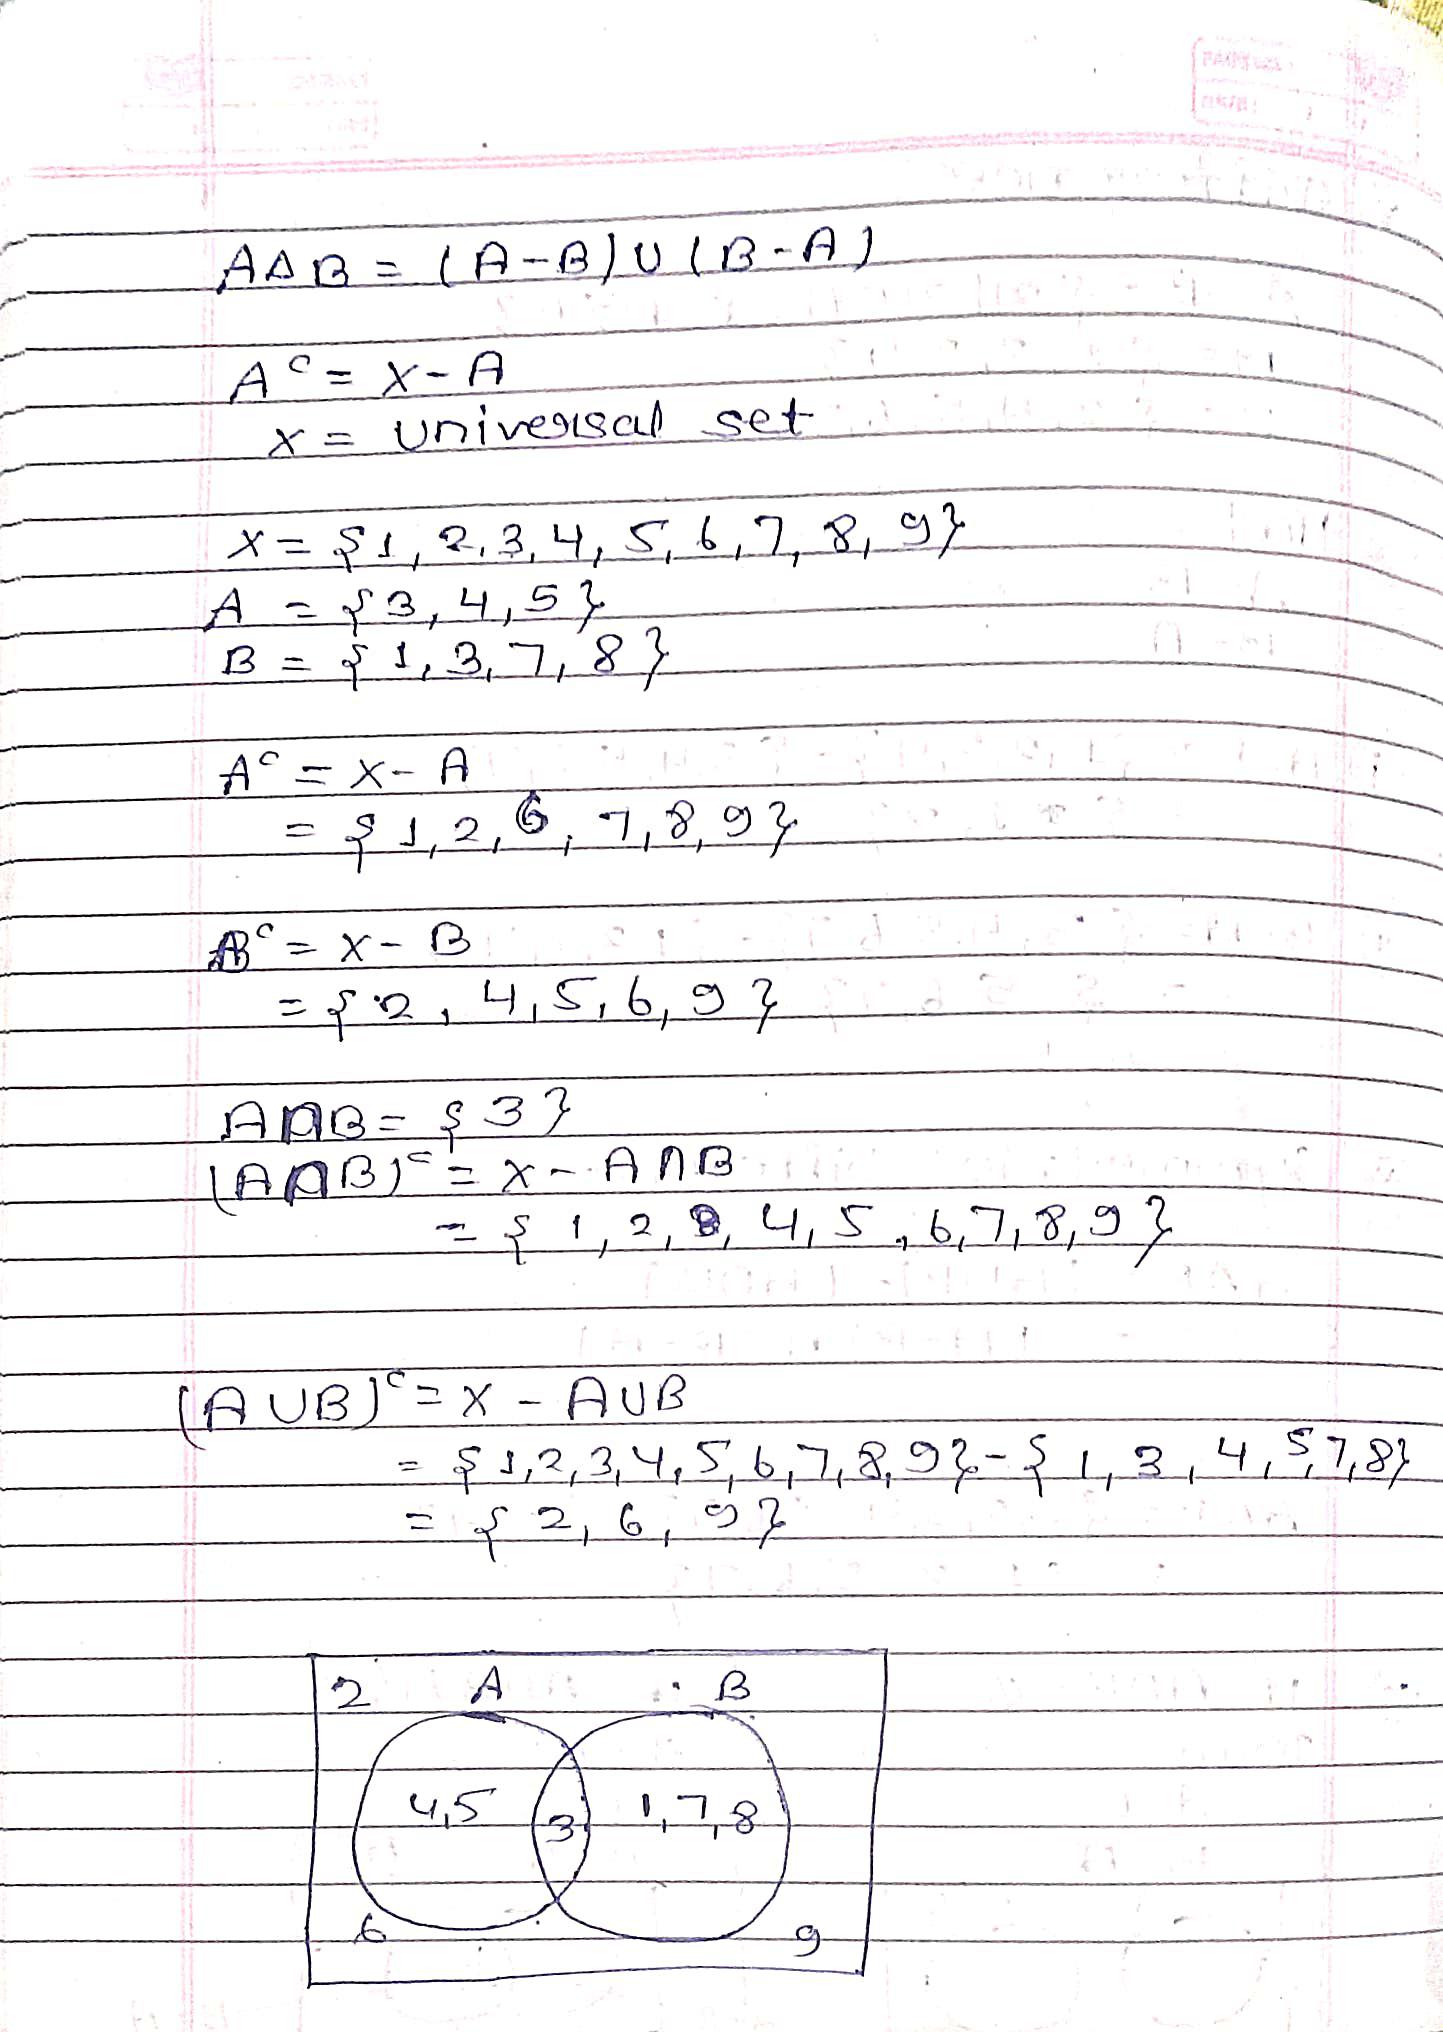 A Δ B = (A-B) ∪ (B-A)
Aᶜ = X-A
X = universal set
X = {1, 2, 3, 4, 5, 6, 7, 8, 9}
A = {3, 4, 5}
B = {1, 3, 7, 8}
Aᶜ = X-A
= {1, 2, 6, 7, 8, 9}
Bᶜ = X-B
= {2, 4, 5, 6, 9}
A∩B = {3}
(A∩B)ᶜ = X - A∩B
= {1, 2, 4, 5, 6, 7, 8, 9}
(A∪B)ᶜ = X - A∪B
= {1, 2, 3, 4, 5, 6, 7, 8, 9} - {1, 3, 4, 5, 7, 8}
= {2, 6, 9}
2 A B
4,5 3 1,7,8
6 9